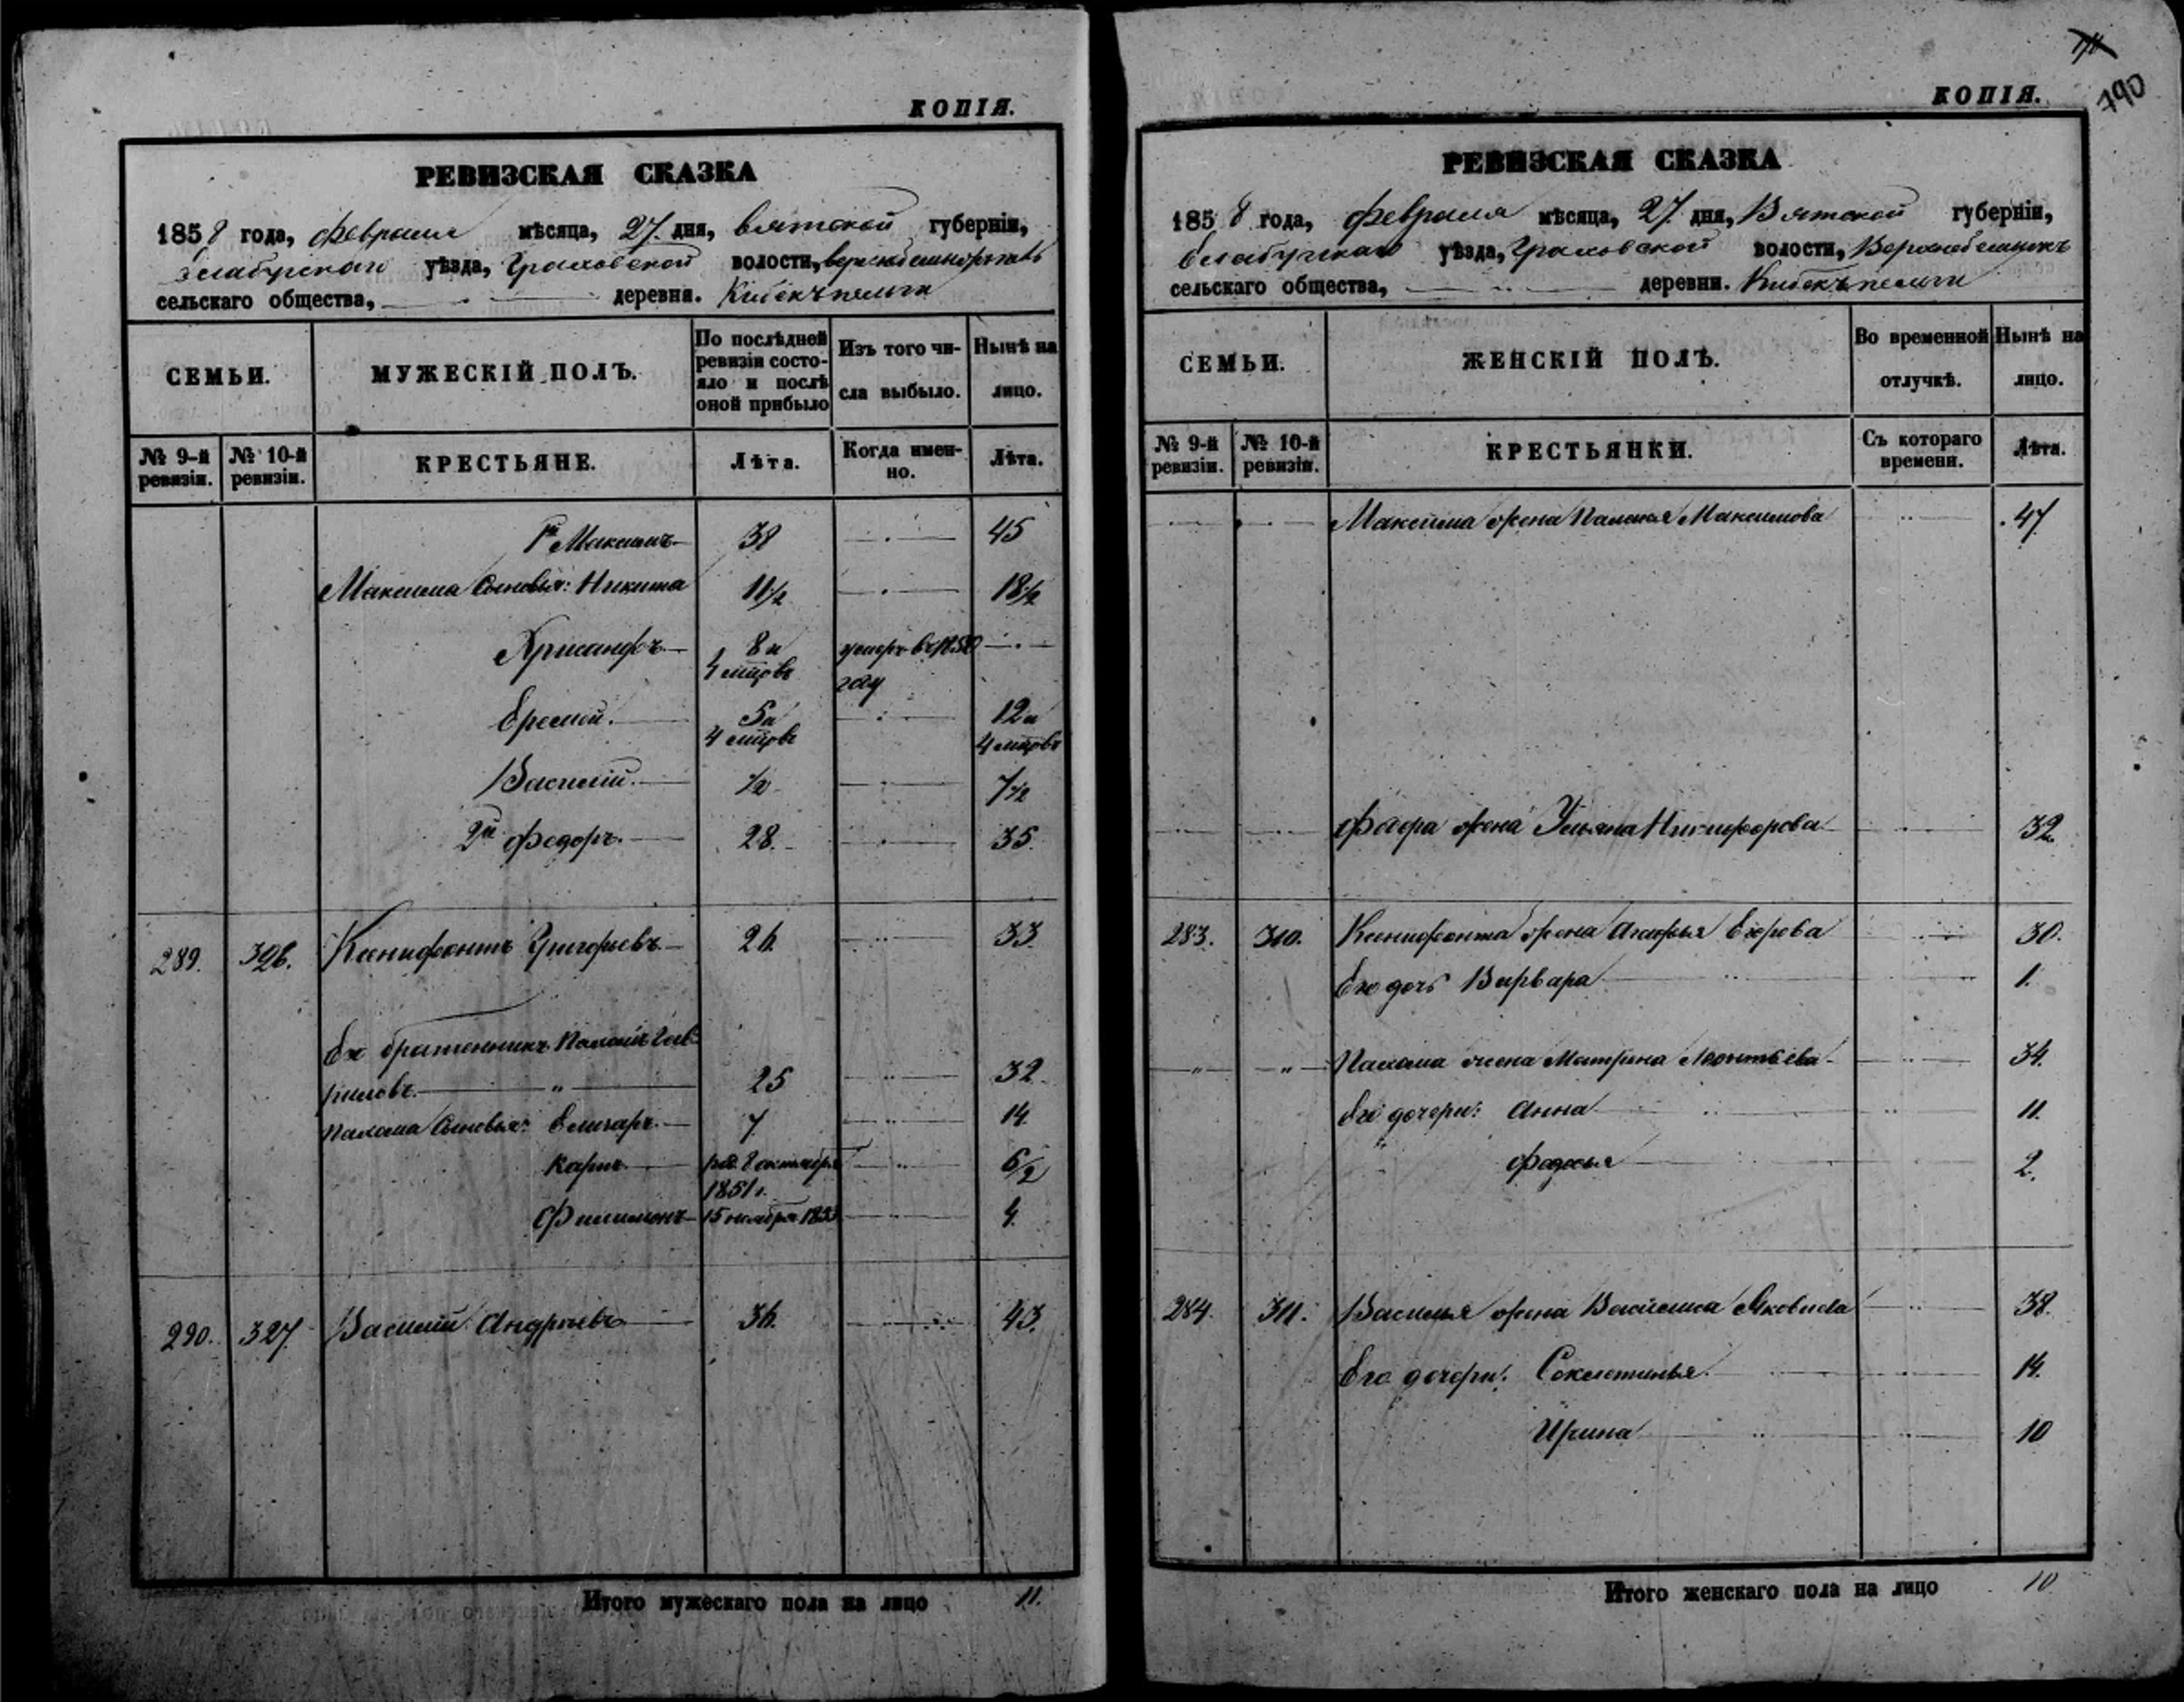 КОПІЯ.
РЕВИЗСКАЯ СКАЗКА
1858 года, февраля мѣсяца, 27 дня, вятской губерніи,
елабугскаго уѣзда, Граховской волости,
сельскаго общества, деревня. Кибекъ пельги
СЕМЬИ. МУЖЕСКІЙ ПОЛЪ. По послѣдней ревизіи состояло и послѣ оной прибыло Изъ того числа выбыло. Нынѣ на лицо.
№ 9-й ревизіи. № 10-й ревизіи. КРЕСТЬЯНЕ. Лѣта. Когда именно. Лѣта.
1й Максимъ 38 45
Максима Сыновья: Никита 11 1/2 18 1/2
Хрисанфъ 8 и 4 мцовъ умеръ въ 1850 году
Еремей. 5 и 4 мцовъ 12 и 4 мцовъ
Василій. 1/2 7 1/2
2й Федоръ. 28. 35
289. 326. Ксенифонтъ Григорьевъ 26 33
Его братенникъ Пахомъ Гав
риловъ. " 25 32
Пахома Сыновья: Елизаръ. 7 14
Карпъ род. 8 октября 1851 г. 6 1/2
Филимонъ 15 ноября 1853 4
290. 327. Василій Андреевъ 36. 43.
Итого мужескаго пола на лицо 11.
790
КОПІЯ.
РЕВИЗСКАЯ СКАЗКА
1858 года, февраля мѣсяца, 27 дня, Вятской губерніи,
елабугскаго уѣзда, Граховской волости,
сельскаго общества, деревни. Кибекъ пельги
СЕМЬИ. ЖЕНСКІЙ ПОЛЪ. Во временной отлучкѣ. Нынѣ на лицо.
№ 9-й ревизіи. № 10-й ревизіи. КРЕСТЬЯНКИ. Съ котораго времени. Лѣта.
Максима жена Максимова 47
Федора жена Ульяна Никифорова 32
283. 310. Ксенифонта жена Агафья Егорова 30.
Его дочь Варвара 1.
" " Пахома жена Матрена Леонтьева 34.
Его дочери: Анна 11.
Федосья 2.
284. 311. Василья жена Василиса Яковлева 38.
Его дочери: 14.
Ирина 10
Итого женскаго пола на лицо 10